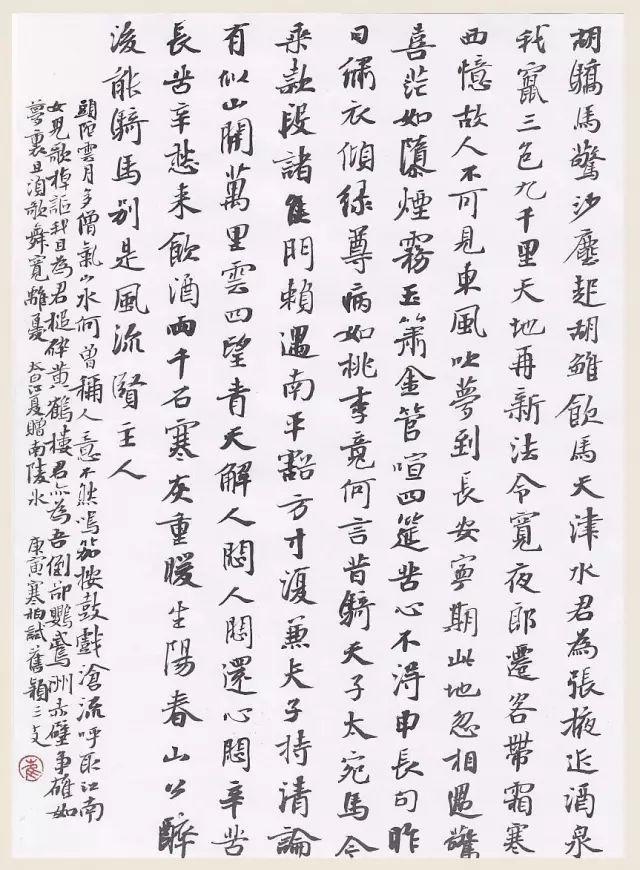 胡驕馬驚沙塵起胡雛飲馬天津水君為張掖近酒泉
我竄三巴九千里天地再新法令寬夜郎遷客帶霜寒
西憶故人不可見東風吹夢到長安寧期此地忽相遇驚
喜茫如墮煙霧玉簫金管喧四筵苦心不得申長句昨
日繡衣傾綠尊病如桃李竟何言昔騎天子太宛馬今
乘款段諸侯門賴遇南平豁方寸復兼夫子持清論
有似山開萬里雲四望青天解人悶人悶還心悶辛苦
長苦辛愁來飲酒兩千石寒灰重暖生陽春山公醉
後能騎馬別是風流賢主人
頭陀雲月多僧氣山水何曾稱人意不然鳴笳按鼓戲滄流呼取江南
女兒歌棹謳我且為君槌碎黃鶴樓君亦為吾倒卻鸚鵡洲赤壁爭雄如
夢裏且須歌舞寬離憂 太白江夏贈南陵冰 庚寅寒柏試舊穎三支